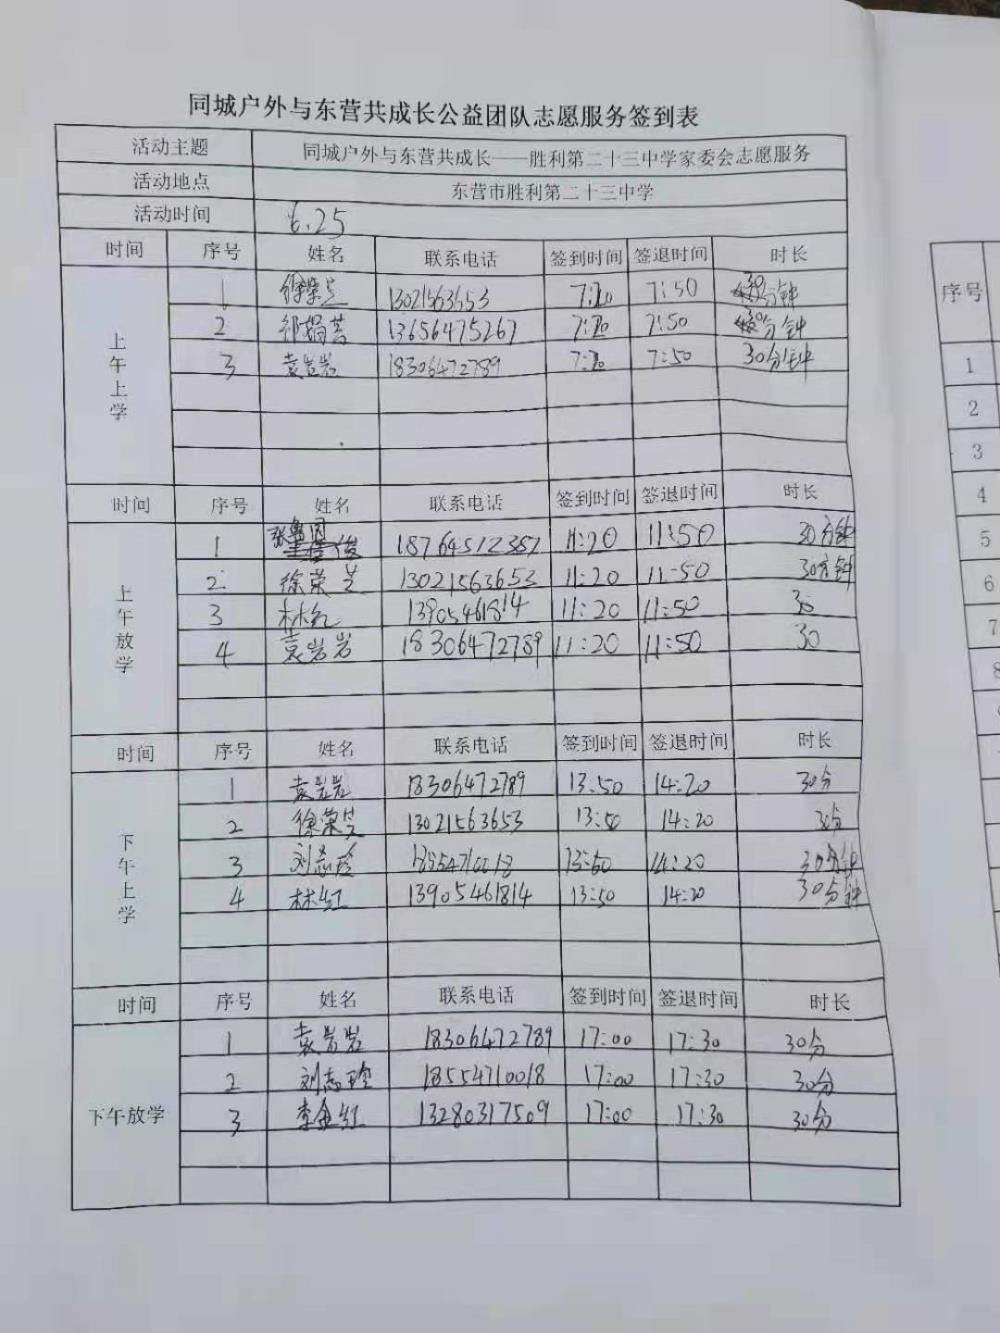 同城户外与东营共成长公益团队志愿服务签到表
活动主题 同城户外与东营共成长——胜利第二十三中学家委会志愿服务
活动地点 东营市胜利第二十三中学
活动时间 6.25
时间 序号 姓名 联系电话 签到时间 签退时间 时长
上午上学
1 徐荣芝 13021563653 7:20 7:50 30分钟
2 祁娟芸 13656475267 7:20 7:50 30分钟
3 袁岩岩 18306472789 7:20 7:50 30分钟
时间 序号 姓名 联系电话 签到时间 签退时间 时长
上午放学
1 18764512387 11:20 11:50 30分钟
2 徐荣芝 13021563653 11:20 11:50 30分钟
3 林红 13905461814 11:20 11:50 30
4 袁岩岩 18306472789 11:20 11:50 30
时间 序号 姓名 联系电话 签到时间 签退时间 时长
下午上学
1 袁岩岩 18306472789 13:50 14:20 30分
2 徐荣芝 13021563653 13:50 14:20 30分
3 刘志玲 18554710018 13:50 14:20 30分钟
4 林红 13905461814 13:50 14:20 30分钟
时间 序号 姓名 联系电话 签到时间 签退时间 时长
下午放学
1 袁岩岩 18306472789 17:00 17:30 30分
2 刘志玲 18554710018 17:00 17:30 30分
3 李金红 13280317509 17:00 17:30 30分
序号
1
2
3
4
5
6
7
8